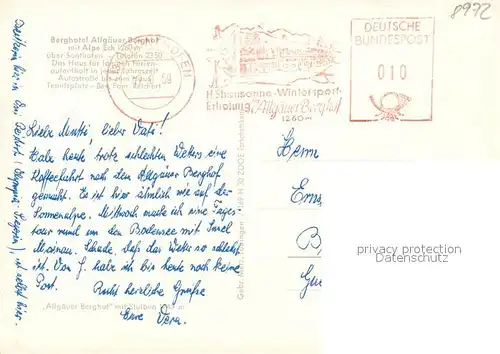 8972
Berghotel Allgäuer Berghof
mit Alpe Eck 1260 m
über Sonthofen - Telefon 2250
Das Haus für
in jeder Jahreszeit
Autostraße bis zum Haus
Tennisplatz - Bes. Fam.
HÖFEN
58
Höhensonne-Wintersport-
Erholung, Allgäuer Berghof
1260 m
DEUTSCHE
BUNDESPOST
010
Liebe Mutti, lieber Vati!
Habe heute trotz schlechten Wetters eine
Kaffeefahrt nach dem Allgäuer Berghof
gemacht. Es ist hier ähnlich wie auf der
Sonnenalpe. Mittwoch mache ich eine Tages-
tour rund um den Bodensee mit Insel
Mainau. Schade, daß das Wetter so schlecht
ist. Von J. habe ich bis heute noch keine
Post. Recht herzliche Grüße
Eure Vera.
hier.
"Allgäuer Berghof" mit Stuiben
Gebr. Metz, Tübingen
Herrn
Erns
B
privacy protection
Datenschutz